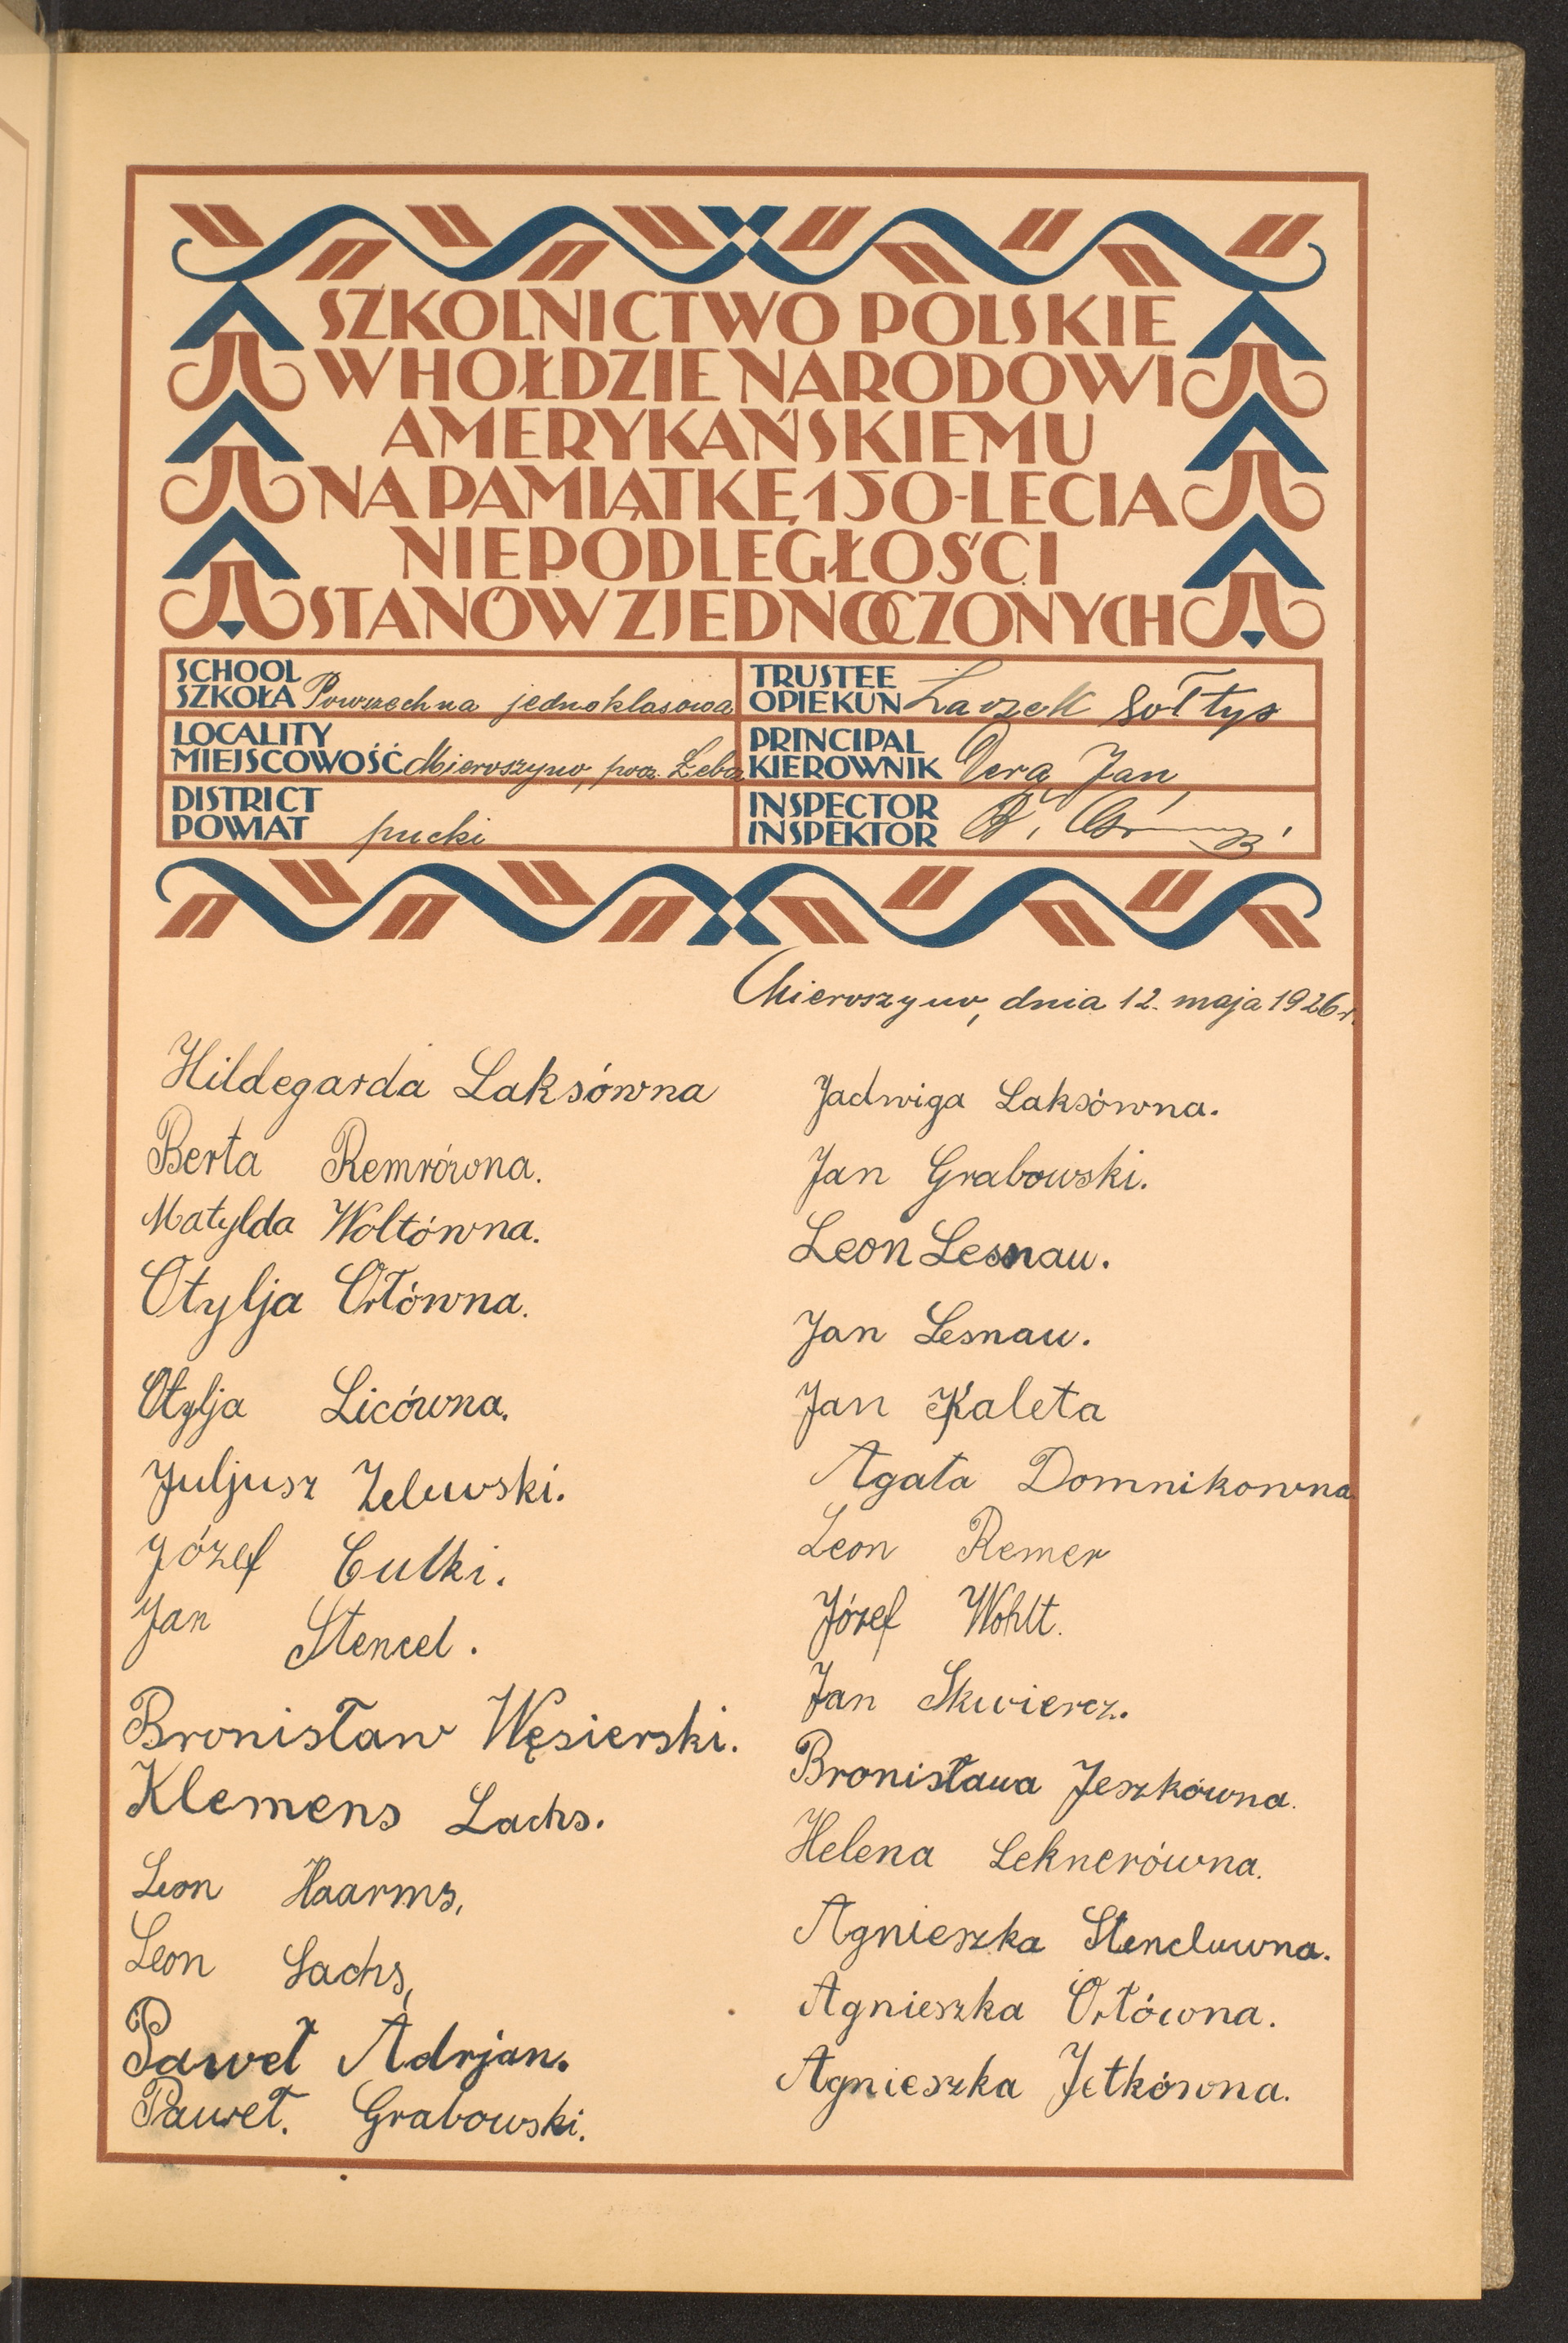 SZKOLNICTWO POLSKIE
W HOŁDZIE NARODOWI
AMERYKAŃSKIEMU
NA PAMIĄTKĘ 150-LECIA
NIEPODLEGŁOŚCI
STANÓW ZJEDNOCZONYCH
SCHOOL
SZKOŁA Powszechna jednoklasowa
LOCALITY
MIEJSCOWOŚĆ Mieroszyno, pocz. Żeba
DISTRICT
POWIAT pucki
TRUSTEE
OPIEKUN Laczek Sołtys
PRINCIPAL
KIEROWNIK Jan
INSPECTOR
INSPEKTOR
Mieroszyno, dnia 12. maja 1926 r.
Hildegarda Laksówna
Berta Remrówna.
Matylda Woltówna.
Otylja Orłówna.
Otylja Licówna.
Juljusz Zelewski.
Józef Culki.
Jan Stencel.
Bronisław Węsierski.
Klemens Lachs.
Leon Haarms,
Leon Lachs,
Paweł Adrjan.
Paweł. Grabowski.
Jadwiga Laksówna.
Jan Grabowski.
Leon Lesnau.
Jan Lesnau.
Jan Kaleta
Agata Domnikowna
Leon Remer
Józef Wohlt.
Jan Skwiercz.
Bronisława Jeszkówna.
Helena Leknerówna.
Agnieszka Stencluwna.
Agnieszka Orłówna.
Agnieszka Jetkówna.